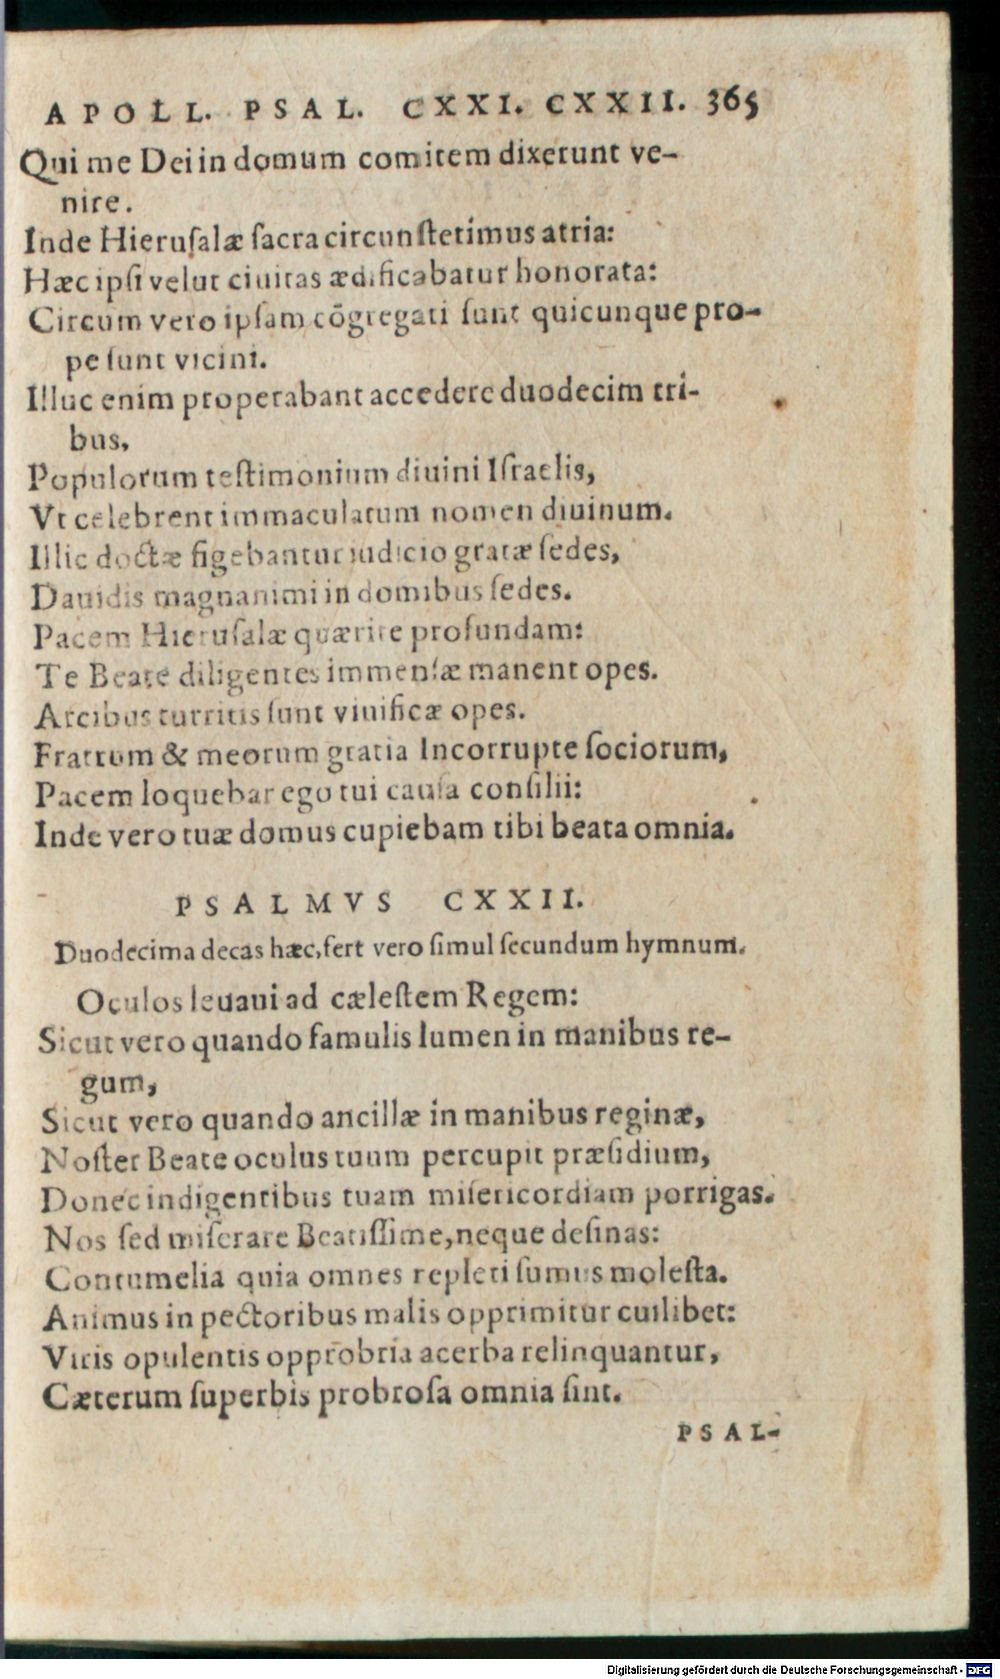 APOLL. PSAL. CXXI. CXXII. 365
Qui me Dei in domum comitem dixerunt ve-
nire.
Inde Hieruſalæ ſacra circunſtetimus atria:
Hæc ipſi velut ciuitas ædificabatur honorata:
Circum vero ipſam cōgregati ſunt quicunque pro-
pe ſunt vicini.
Illuc enim properabant accedere duodecim tri-
bus,
Populorum teſtimonium diuini Iſraelis,
Vt celebrent immaculatum nomen diuinum.
Illic doctæ figebantur iudicio gratæ ſedes,
Dauidis magnanimi in domibus ſedes.
Pacem Hieruſalæ quærite profundam:
Te Beate diligentes immenſæ manent opes.
Arcibus turritis ſunt viuificæ opes.
Fratrum & meorum gratia Incorrupte ſociorum,
Pacem loquebar ego tui cauſa conſilii:
Inde vero tuæ domus cupiebam tibi beata omnia.
PSALMVS CXXII.
Duodecima decas hæc, fert vero ſimul ſecundum hymnum.
Oculos leuaui ad cæleſtem Regem:
Sicut vero quando famulis lumen in manibus re-
gum,
Sicut vero quando ancillæ in manibus reginæ,
Noſter Beate oculus tuum percupit præſidium,
Donec indigentibus tuam miſericordiam porrigas.
Nos ſed miſerare Beatiſſime, neque deſinas:
Contumelia quia omnes repleti ſumus moleſta.
Animus in pectoribus malis opprimitur cuilibet:
Viris opulentis opprobria acerba relinquantur,
Cæterum ſuperbis probroſa omnia ſint.
PSAL-
Digitalisierung gefördert durch die Deutsche Forschungsgemeinschaft - DFG